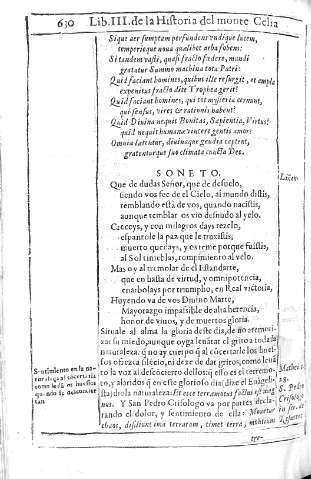 630 Lib. III. de la Historia del monte Celia
Sique aer sumptam perfundens vndique lucem,
temporieque noua qualibet arba fobem:
Si tandem vasti, quasi fracto fœdere, mundi
gratatur Summo machina tota Patri:
Quid faciant homines, quibus ille resurgit, et ampla
expenitus fracto dite Trophea gerit?
Quid faciant homines, qui tot mysteria cernunt,
qui sensus, vires & rationis habent?
Quid Diuina nequit Bonitas, Sapientia, Virtus?
quid nequit humanæ vincere gentis amor?
Omnia latentur, diuinaque gaudia ceptent,
gratenturque suo climata cuncta Deo.
SONETO.
Que de dudas Señor, que de desuelo,
siendo vos fee de el Cielo, al mundo distis,
temblando està de vos, quando nacistis,
aunque temblar os vio desnudo al yelo.
Creceys, y con milagros days rezelo,
espantole la paz que le truxistis,
muerto quedays, y os teme porque fuistis,
al Sol tinieblas, rompimiento al velo.
Mas oy al tremolar de el Estandarte,
que en hasta de virtud, y omnipotencia,
enarbolays por triumpho, en Real victoria,
Huyendo va de vos Diuino Marte,
Mayorazgo impassible de alta herencia,
honor de viuos, y de muertos gloria.
Situale al alma la gloria deste dia, de no atemori-
zar su miedo, aunque oyga leuātar el grito a toda la
naturaleza: q̃ no ay cuerpo q̃ al cōcertarle los hues-
sos ofrezca silēcio, ni dexe de dar gritos; como leuā
ta la voz al descōcierto dellos: q̃ esso es el terremo-
to, y alaridos q̃ en este glorioso dia, dize el Euāgeli-
sta, dio la naturaleza: Et ecce terræmotus factus est mag
nus. Y San Pedro Crisologo va por partes decla-
rando el dolor, y sentimiento de ella: Moritur
chaos, dissiliunt ema terrarum, timet terra, montium
tre-
Sentimiento en la na-
turaleza
Matthæi
28.
S. Pedro
Crisologo
in ser. de